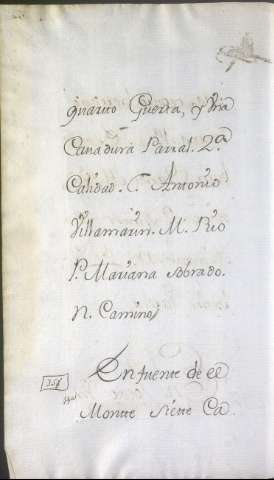 quarto Guerta, y Una
Canadura Parral. 2ª
Calidad. L. Antonio
Villamarin. M. Rio
P. Mariana Sobrado.
N. Camino
En fuente de el
Montte Siette Ca..